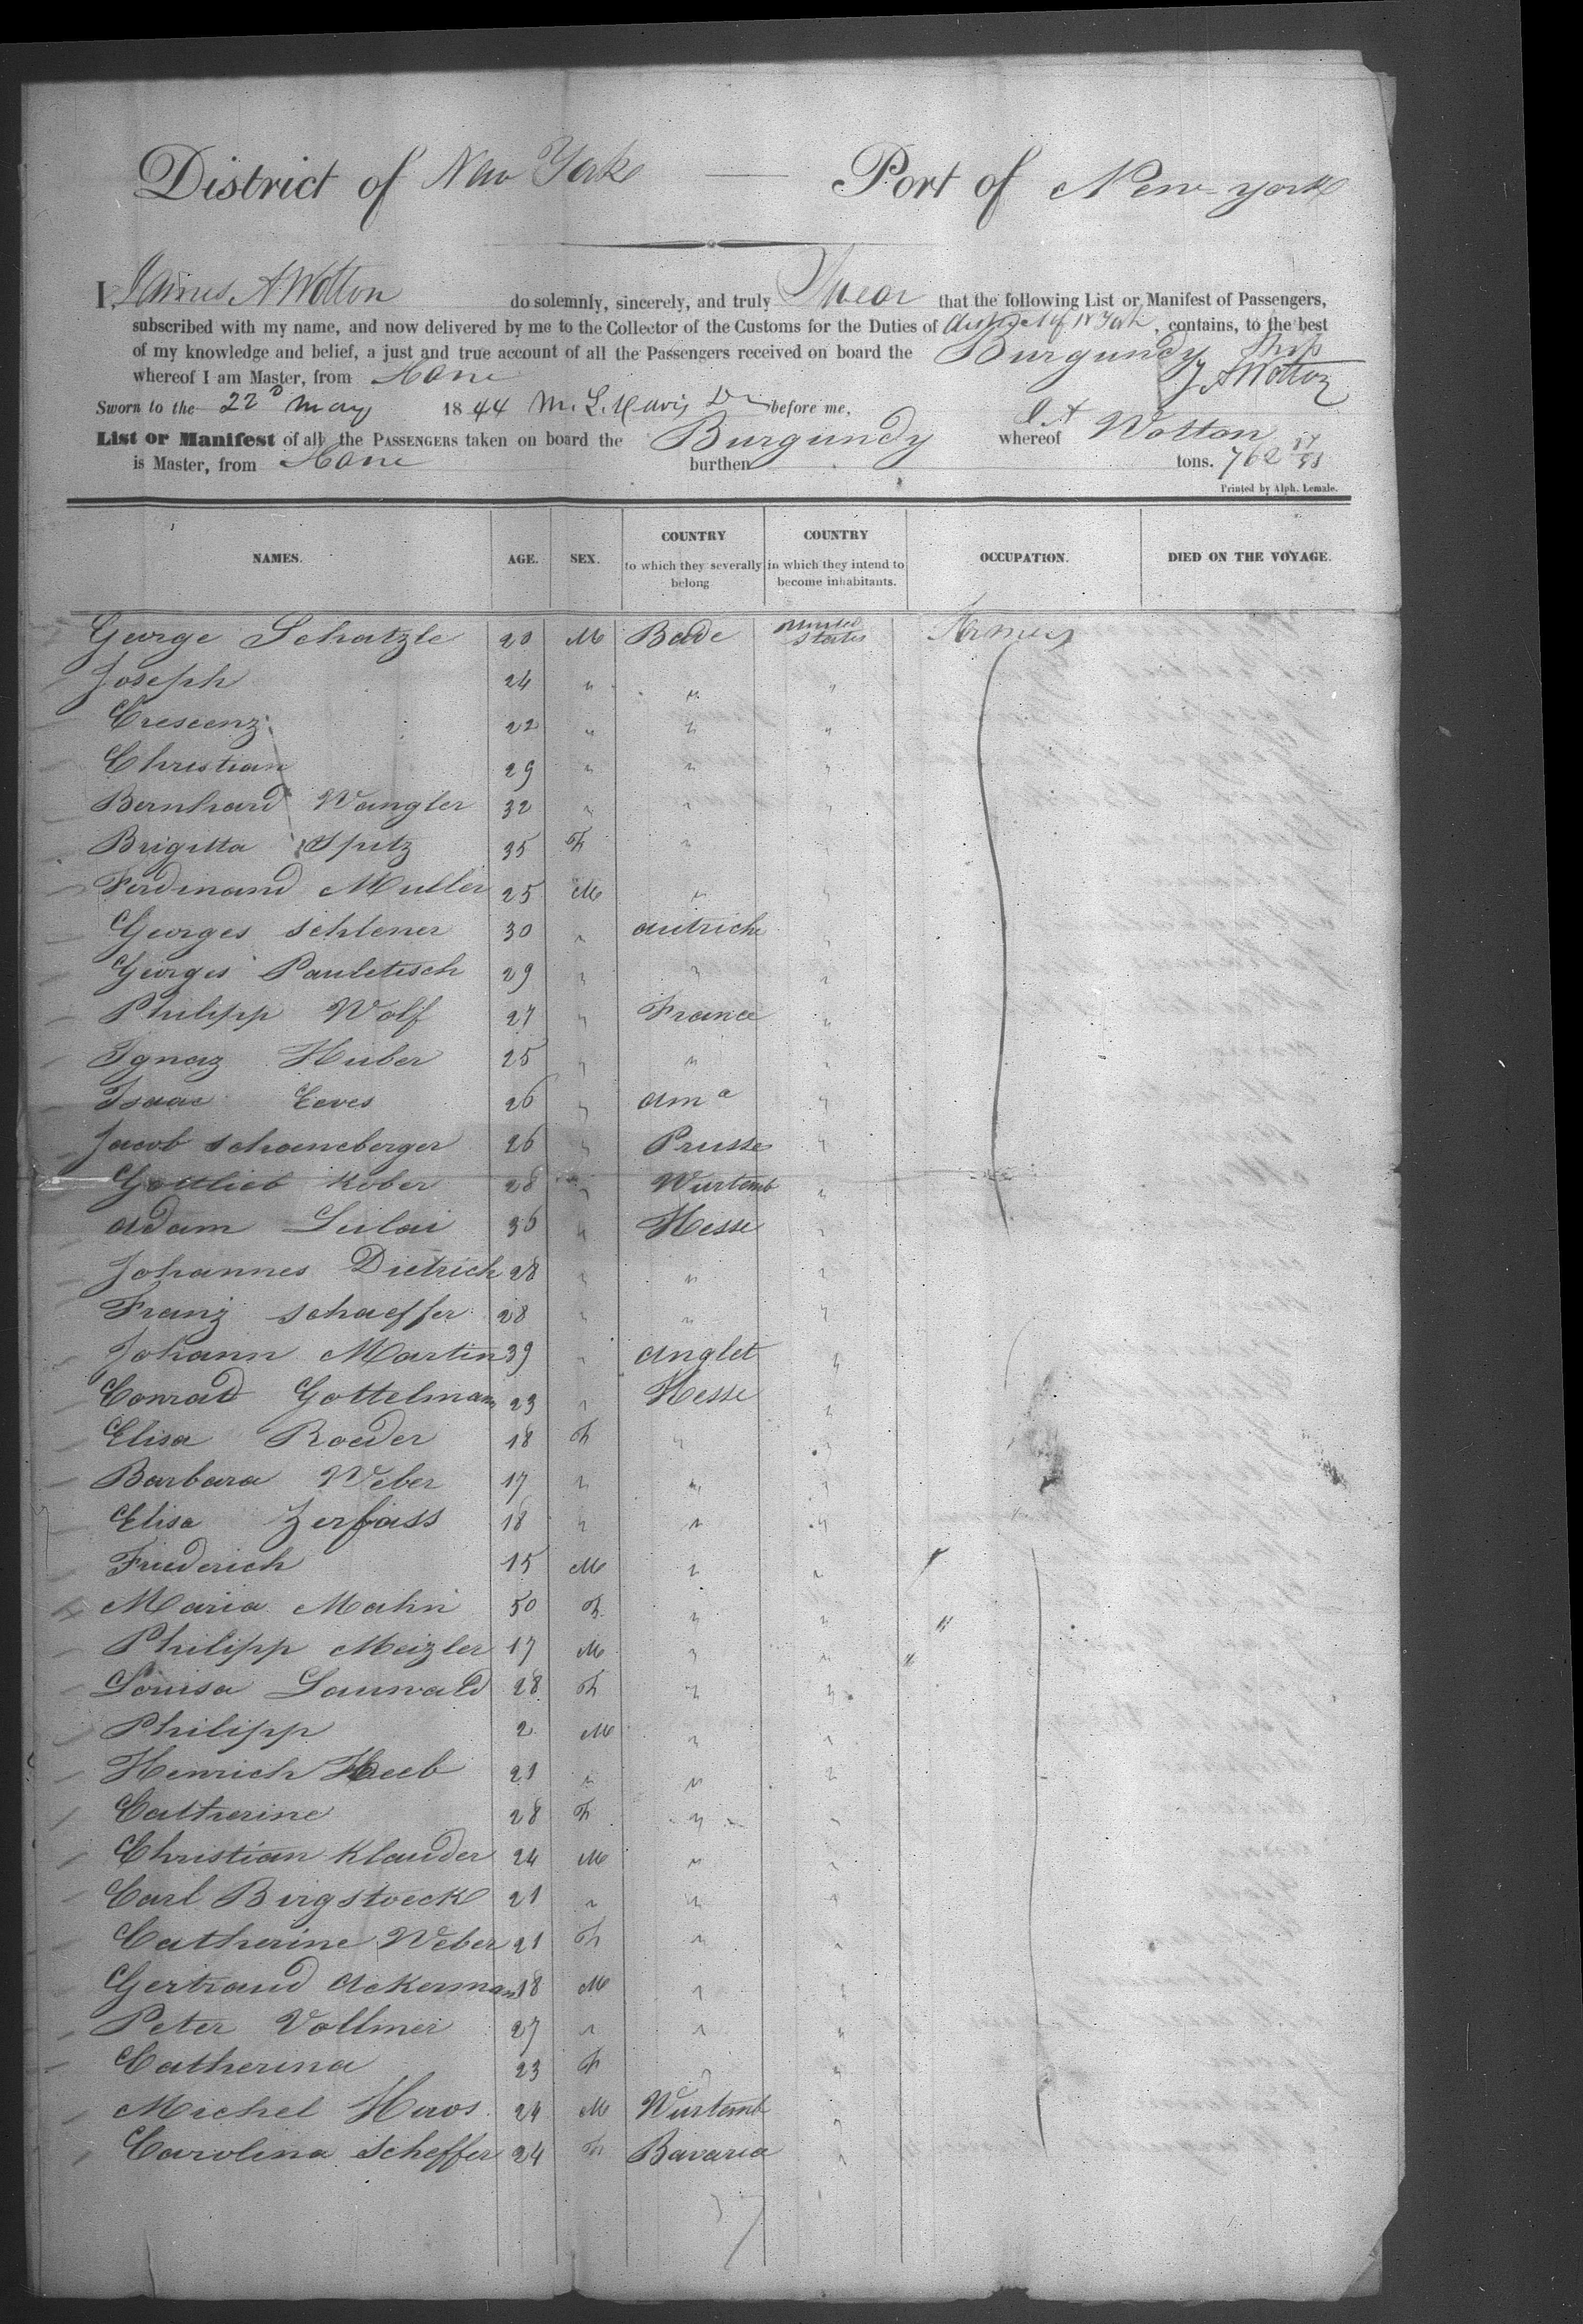 District of New York — Port of New-york
I, James A Wotton do solemnly, sincerely, and truly Swear that the following List or Manifest of Passengers,
subscribed with my name, and now delivered by me to the Collector of the Customs for the Duties of district of N York, contains, to the best
of my knowledge and belief, a just and true account of all the Passengers received on board the Burgundy Ship
whereof I am Master, from Havre J A Wotton
Sworn to the 22d May 1844 before me,
List or Manifest of all the PASSENGERS taken on board the Burgundy whereof J A Wotton
is Master, from Havre burthen tons. 762
Printed by Alph. Lemale.
NAMES. AGE. SEX. COUNTRY to which they severally belong COUNTRY in which they intend to become inhabitants. OCCUPATION. DIED ON THE VOYAGE.
George Schatzle 20 M Bade United States Farmers
Joseph 24 " " "
Crescenz 22 " " "
Christian 29 " " "
Bernhard Wangler 32 " " "
Brigitta Spitz 35 F " "
Ferdinand Muller 25 M " "
Georges Schlener 30 " autriche "
Georges Pauletisch 29 " " "
Philipp Wolf 27 " France "
Ignaz Huber 25 " " "
Isaac Eeves 26 " am a "
Jacob Schoeneberger 26 " Prusse "
Gottlieb Kober 28 " Wurtemb "
Adam Lulai 36 " Hesse "
Johannes Dietrich 28 " " "
Franz Schaeffer 28 " " "
Johann Martin 39 " anglet "
Conrad Gottelmann 23 " Hesse "
Elisa Roeder 18 F " "
Barbara Weber 17 " " "
Elisa Zerfass 18 " " "
Friederich 15 M " "
Maria Mahn 50 F " " "
Philipp Meizler 17 M " " "
Louisa Lauwald 28 F " "
Philipp 2 M " "
Henrich Heeb 21 " " "
Catherine 28 F " "
Christian Klauder 24 M " "
Carl Birgstoeck 21 " " "
Catherine Weber 21 F " "
Gertraud Ackermann 18 M " "
Peter Vollmer 27 " " "
Catherina 23 F " "
Michel Haos 24 M Wurtemb "
Carolina Scheffer 24 F Bavaria "
37